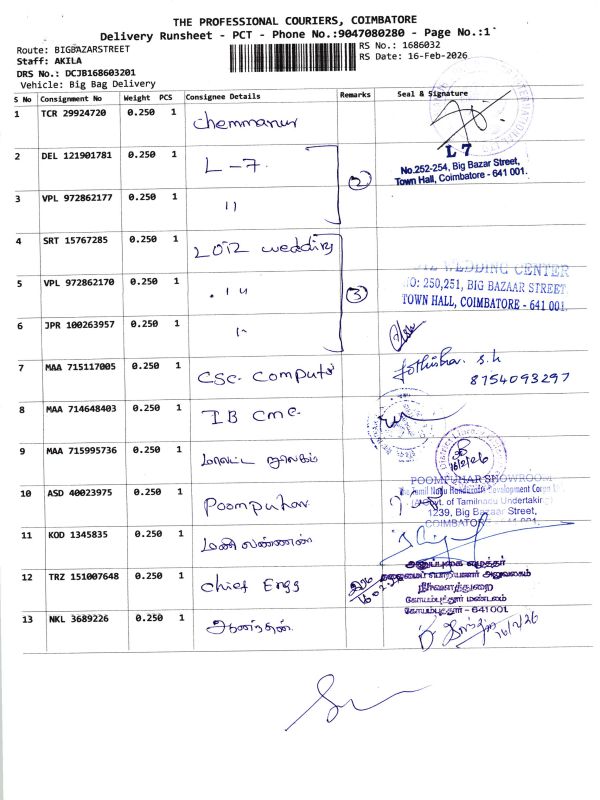 THE PROFESSIONAL COURIERS, COIMBATORE
Delivery Runsheet - PCT - Phone No.:9047080280 - Page No.:1
Route: BIGBAZARSTREET
RS No.: 1686032
Staff: AKILA
RS Date: 16-Feb-2026
DRS No.: DCJB168603201
Vehicle: Big Bag Delivery
S No Consignment No Weight PCS Consignee Details Remarks Seal & Signature
1 TCR 29924720 0.250 1 Chemmanur
2 DEL 121901781 0.250 1 L-7
L 7
No.252-254, Big Bazar Street,
Town Hall, Coimbatore - 641 001.
3 VPL 972862177 0.250 1 ıı
2
4 SRT 15767285 0.250 1 wedding
5 VPL 972862170 0.250 1
3
WEDDING CENTER
NO: 250,251, BIG BAZAAR STREET
TOWN HALL, COIMBATORE - 641 001.
6 JPR 100263957 0.250 1
7 MAA 715117005 0.250 1 CSC Computs
s.k
8754093297
8 MAA 714648403 0.250 1 IB CMC
9 MAA 715995736 0.250 1 மாவட்ட நூலகம்
16/2/26
10 ASD 40023975 0.250 1 Poompuhar
POOMPUHAR SHOWROOM
The Tamil Nadu Handicrafts Development Corpn Ltd.
(A Govt. of Tamilnadu Undertaking)
1239, Big Bazaar Street,
COIMBATORE - 641 001.
11 KOD 1345835 0.250 1 மணிவண்ணன்
12 TRZ 151007648 0.250 1 Chief Engg
தலைமைப் பொறியாளர் அலுவலகம்
நீர்வளத்துறை
கோயம்புத்தூர் மண்டலம்
கோயம்புத்தூர் - 641001
13 NKL 3689226 0.250 1 ஆனந்தன்
16/2/26